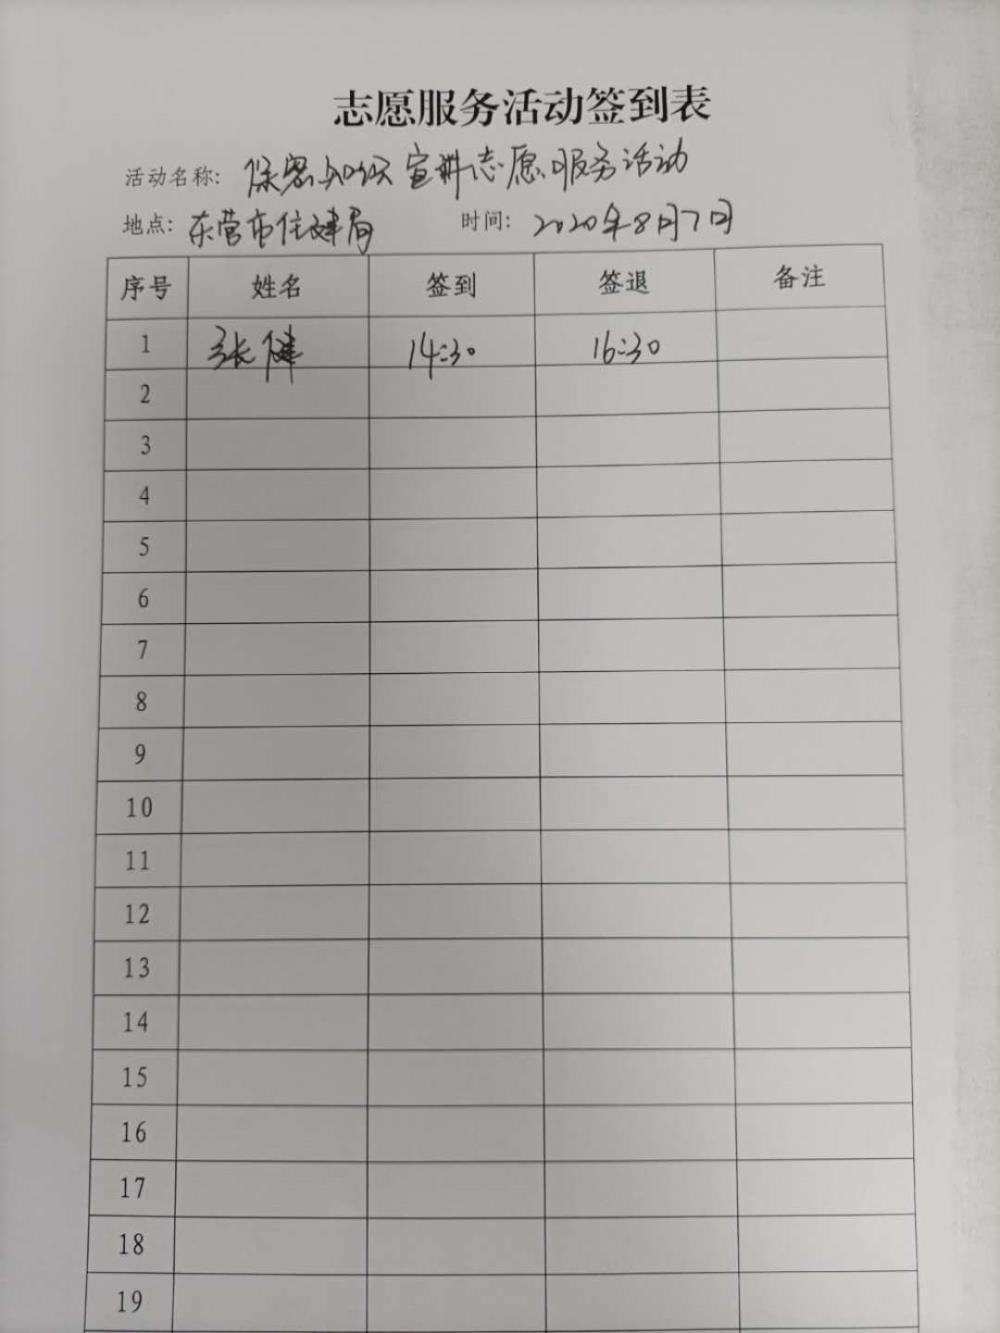 志愿服务活动签到表
活动名称: 保密知识宣讲志愿服务活动
地点: 东营市住建局 时间: 2020年8月7日
序号 姓名 签到 签退 备注
1 张健 14:30 16:30
2
3
4
5
6
7
8
9
10
11
12
13
14
15
16
17
18
19